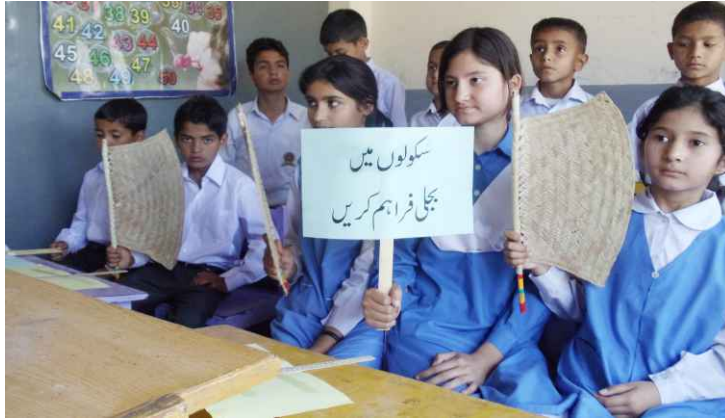 38 39
41 42 40
45 43 44
46 47
48 49 50
سکولوں میں
بجلی فراہم کریں